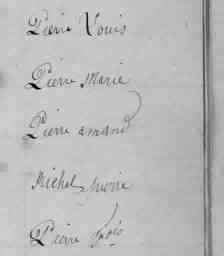 Pierre Louis
Pierre Marie
Pierre amand
Michel
Pierre